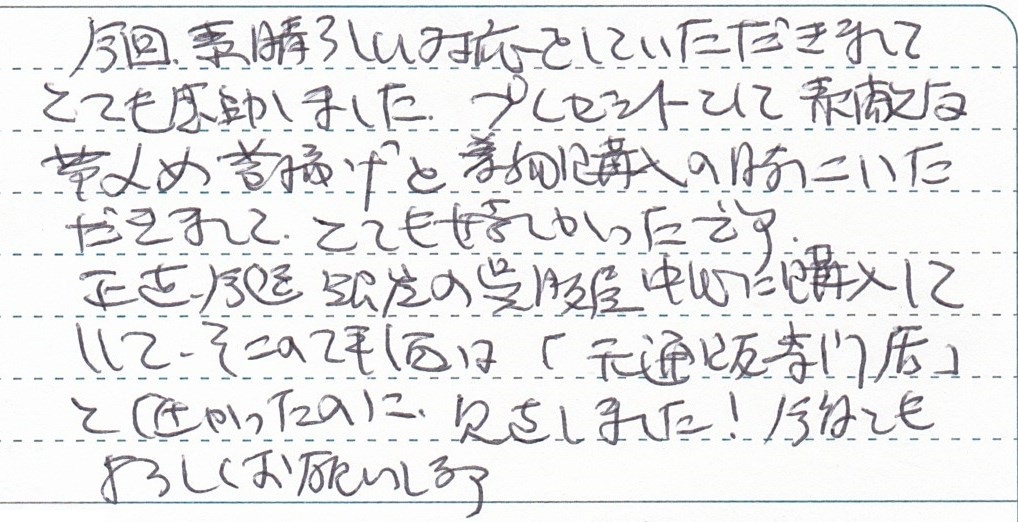 今回、素晴らしい対応をしていただきまして
とても感動しました。プレセントして素敵な
帯〆め 帯揚げと 着物購入の時にいた
だきまして、とても嬉しかったです。
正直、今迄 銀座の呉服屋中心に購入して
いて、そこの評価は「元通販専門店」
と低かったのに、見直しました！今後とも
よろしくお願いします